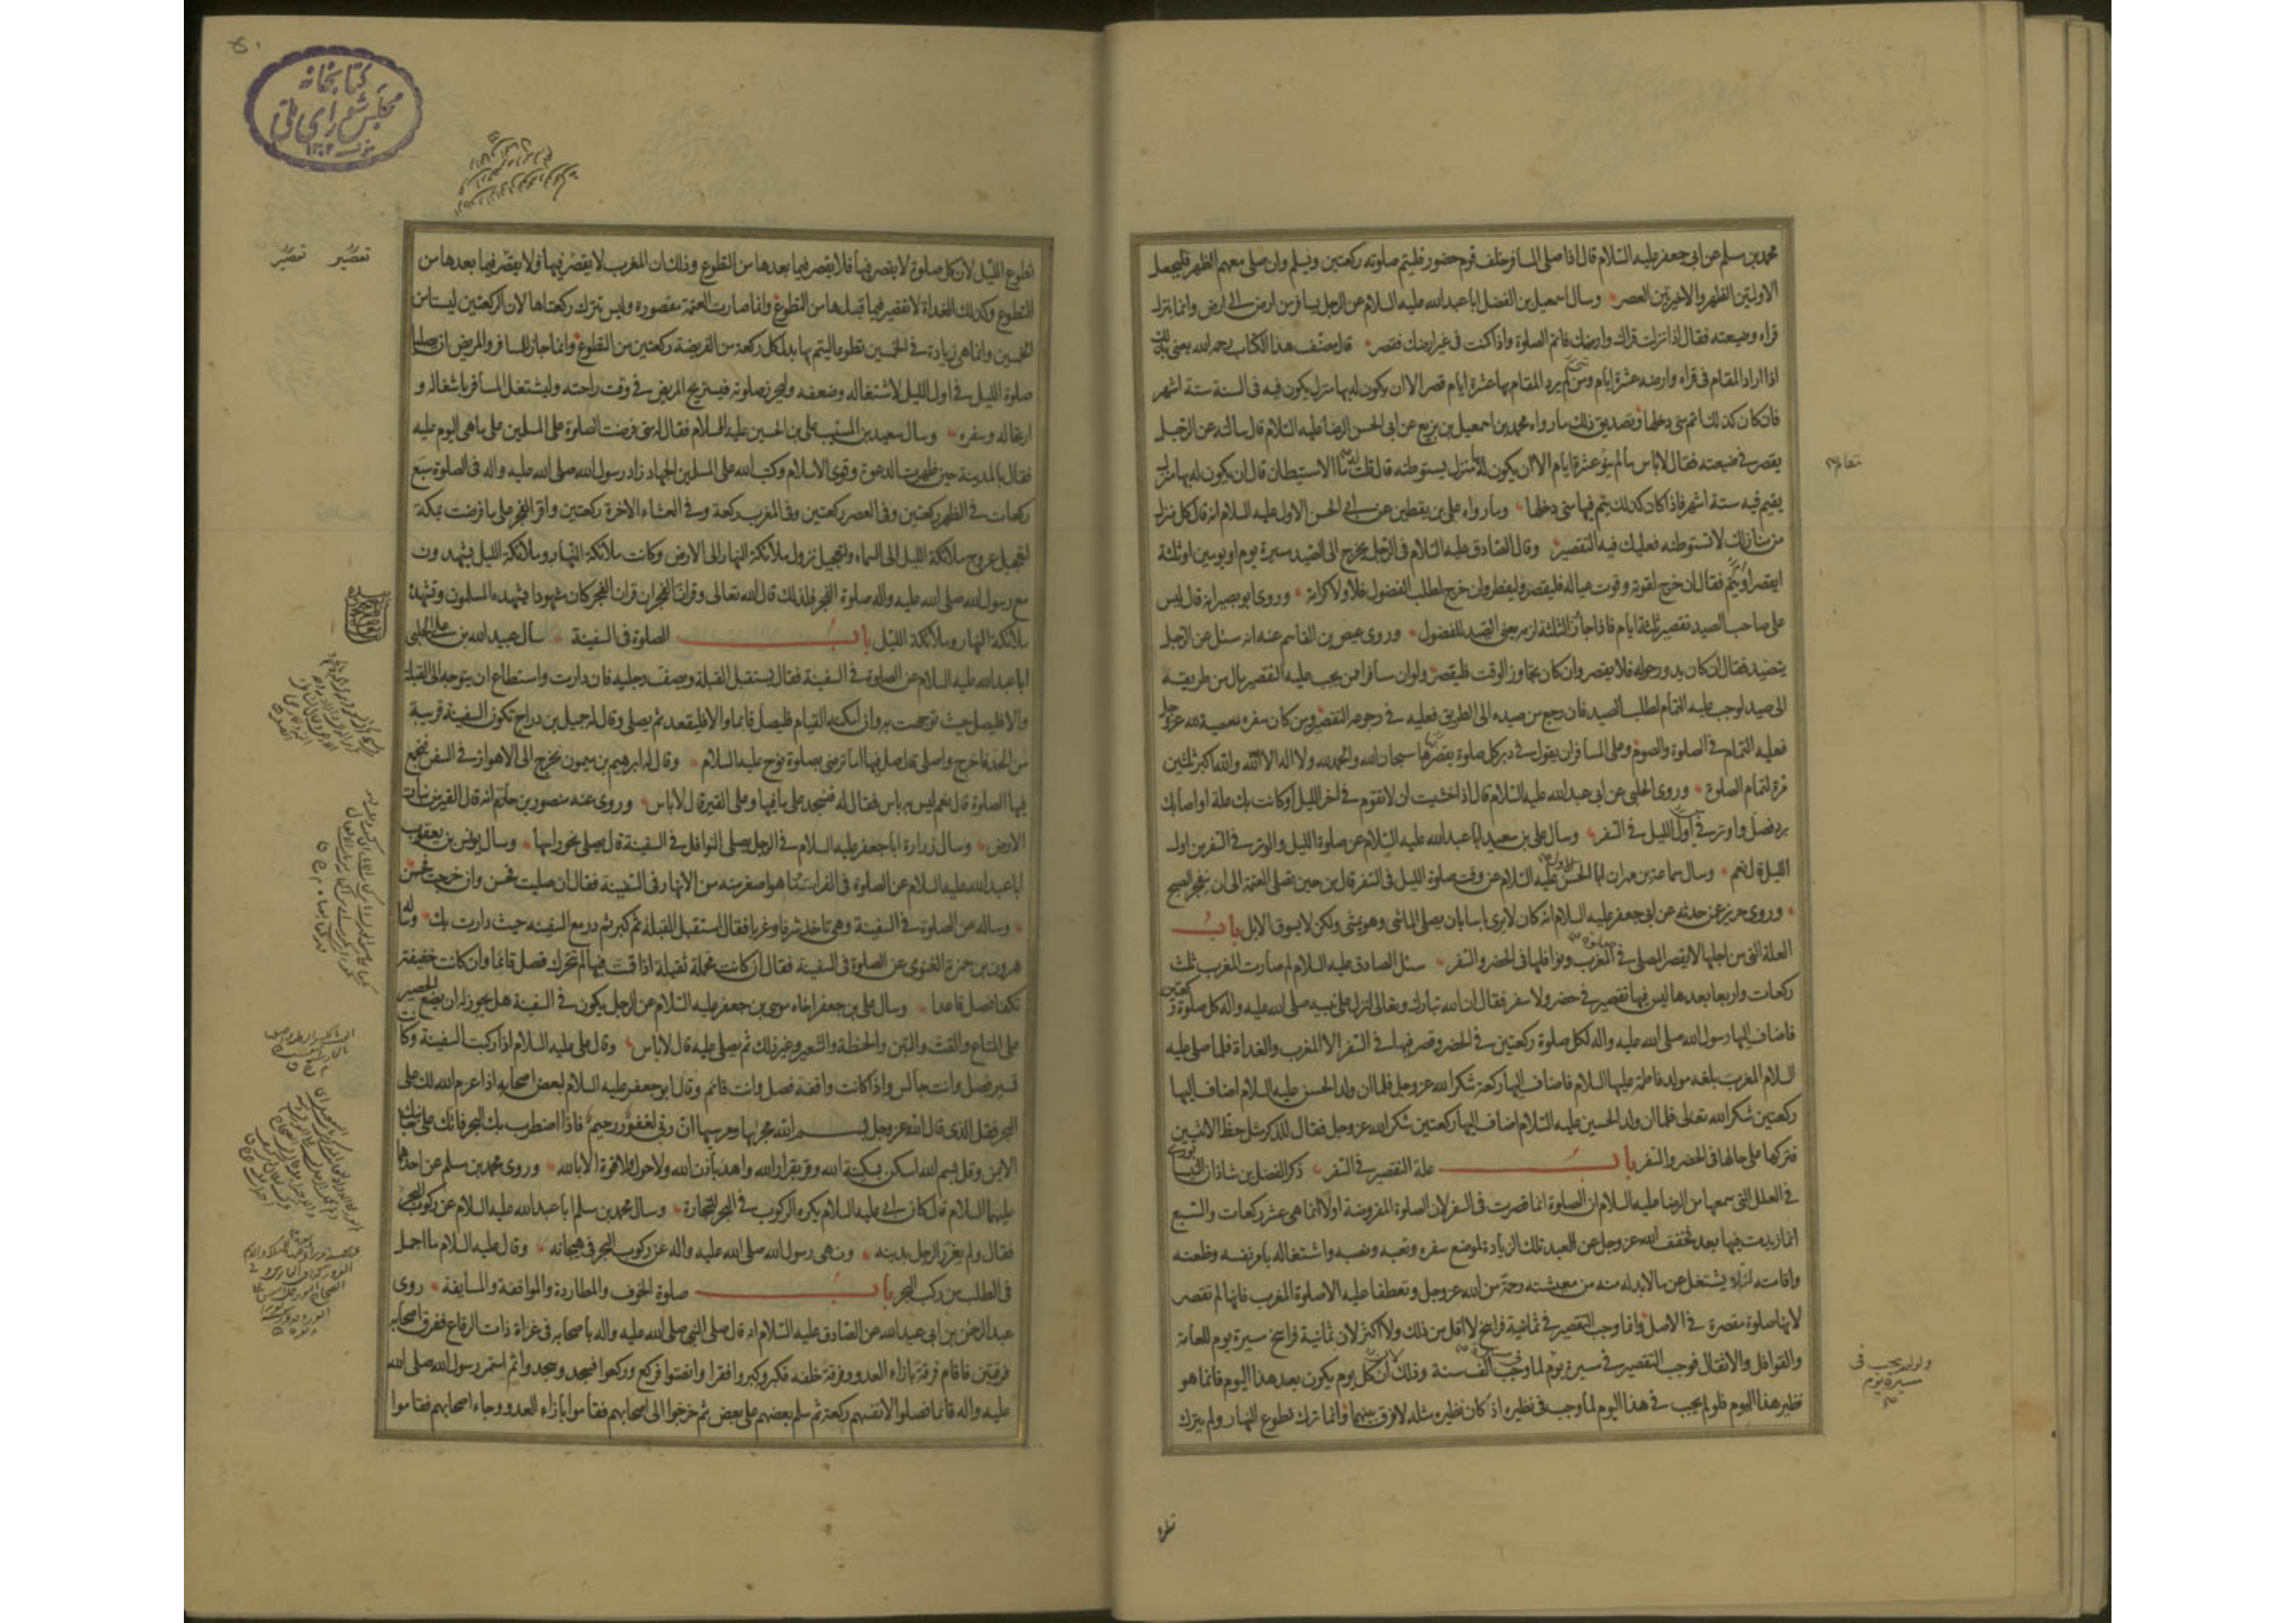 محمد بن مسلم عن ابى جعفر عليه السلام قال اذا صلى المسافر خلف قوم حضور فليتم صلوته ركعتين ويسلم وان صلى معهم الظهر فليجعل
الاولتين الظهر والاخيرتين العصر وسال اسمعيل بن الفضل ابا عبد الله عليه السلام عن الرجل يسافر من ارض الى ارض وانما ينزل
قراه وضيعته فقال اذا نزلت قراك وارضك فاتم الصلوة واذا كنت فى غير ارضك فقصر قال مصنف هذا الكتاب رحمه الله يعنى بذلك
اذا اراد المقام فى قراه وارضه عشرة ايام ومن لم يرد المقام بها عشرة ايام قصر الا ان يكون له بها منزل يكون فيه فى السنة ستة اشهر
فان كان كذلك اتم متى دخلها وتصديق ذلك ما رواه محمد بن اسمعيل بن بزيع عن ابى الحسن الرضا عليه السلام قال سالته عن الرجل
يقصر فى ضيعته فقال لا باس ما لم ينو عشرة ايام الا ان يكون له بها منزل يستوطنه قال قلت له ما الاستيطان قال ان يكون له بها منزل
يقيم فيه ستة اشهر فاذا كان كذلك يتم فيها متى دخلها وما رواه على بن يقطين عن ابى الحسن الاول عليه السلام انه قال كل منزل
من منازلك لا تستوطنه فعليك فيه التقصير وقال الصادق عليه السلام فى الرجل يخرج الى الصيد مسيرة يوم او يومين او ثلثة
ايقصر او يتم فقال ان خرج لقوته وقوت عياله فليقصر وليفطر وان خرج لطلب الفضول فلا ولا كرامة وروى ابو بصير انه قال ليس
على صاحب الصيد تقصير ثلثة ايام فاذا جاز الثلثة لزمه يعنى الصيد للفضول وروى عيص بن القاسم عنه انه سئل عن الرجل
يتصيد فقال ان كان يدور حوله فلا يقصر وان كان تجاوز الوقت فليقصر ولو ان مسافرا ممن يجب عليه التقصير مال من طريقه
الى صيد لوجب عليه التمام لطلب الصيد فان رجع من صيده الى الطريق فعليه فى رجوعه التقصير ومن كان سفره معصية لله عز وجل
فعليه التمام فى الصلوة والصوم وعلى المسافر ان يقول فى دبر كل صلوة يقصرها سبحان الله والحمد لله ولا اله الا الله والله اكبر ثلثين
مرة لتمام الصلوة وروى الحلبى عن ابى عبد الله عليه السلام قال اذا خشيت ان لا تقوم فى اخر الليل او كانت بك علة او اصابك
برد فصل واوتر فى اول الليل فى السفر وسال على بن سعيد ابا عبد الله عليه السلام عن صلوة الليل والوتر فى السفر من اول
الليل قال نعم وسال سماعة بن مهران ابا الحسن الاول عليه السلام عن وقت صلوة الليل فى السفر قال من حين تصلى العتمة الى ان ينفجر الصبح
وروى حريز عمن حدثه عن ابى جعفر عليه السلام انه كان لا يرى باسا بان يصلى الماشى وهو يمشى ولكن لا يسوق الابل باب
العلة التى من اجلها لا يقصر المصلى فى المغرب ونوافلها فى الحضر والسفر سئل الصادق عليه السلام لم صارت المغرب ثلث
ركعات واربعا بعدها ليس فيها تقصير فى حضر ولا سفر فقال ان الله تبارك وتعالى انزل على نبيه صلى الله عليه واله كل صلوة ركعتين
فاضاف اليها رسول الله صلى الله عليه واله لكل صلوة ركعتين فى الحضر وقصر فيها فى السفر الا المغرب والغداة فلما صلى عليه
السلام المغرب بلغه مولد فاطمة عليها السلام فاضاف اليها ركعة شكرا لله عز وجل فلما ان ولد الحسن عليه السلام اضاف اليها
ركعتين شكرا لله تعالى فلما ان ولد الحسين عليه السلام اضاف اليها ركعتين شكرا لله عز وجل فقال للذكر مثل حظ الانثيين
فتركها على حالها فى الحضر والسفر باب علة التقصير فى السفر ذكر الفضل بن شاذان النيسابورى
فى العلل التى سمعها من الرضا عليه السلام ان الصلوة انما قصرت فى السفر لان الصلوة المفروضة اولا انما هى عشر ركعات والسبع
انما زيدت فيها بعد فخفف الله عز وجل عن العبد تلك الزيادة لموضع سفره وتعبه ونصبه واشتغاله بامر نفسه وظعنه
واقامته لئلا يشتغل عن ما لا بد له منه من معيشته رحمة من الله عز وجل وتعطفا عليه الا صلوة المغرب فانها لم تقصر
لانها صلوة مقصرة فى الاصل وانما وجب التقصير فى ثمانية فراسخ لا اقل من ذلك ولا اكثر لان ثمانية فراسخ مسيرة يوم للعامة
والقوافل والاثقال فوجب التقصير فى مسيرة يوم لما وجب فى مسيرة الف سنة وذلك لان كل يوم يكون بعد هذا اليوم فانما هو
نظير هذا اليوم فلو لم يجب فى هذا اليوم لما وجب فى نظيره اذ كان نظيره مثله لا فرق بينهما وانما ترك تطوع النهار ولم يترك
ولو لم يجب فى
مسيرة يوم
تطوع
كتابخانه
مجلس شوراى ملى
١٣٠٢
تقصير تقصير
تطوع الليل لان كل صلوة لا يقصر فيها فلا يقصر فيما بعدها من التطوع وذلك ان المغرب لا يقصر فيها فلا يقصر فيما بعدها من
التطوع وكذلك الغداة لا تقصير فيما قبلها من التطوع وانما صارت العتمة مقصورة وليس تترك ركعتاها لان الركعتين ليستا من
الخمسين وانما هى زيادة فى الخمسين تطوعا ليتم بها بدل كل ركعة من الفريضة ركعتين من التطوع وانما جاز للمسافر والمريض ان يصليا
صلوة الليل فى اول الليل لاشتغاله وضعفه وليحرز صلوته فيستريح المريض فى وقت راحته وليشتغل المسافر باشغاله و
ارتحاله وسفره وسال سعيد بن المسيب على بن الحسين عليه السلام فقال له متى فرضت الصلوة على المسلمين على ما هى اليوم عليه
فقال بالمدينة حين ظهرت الدعوة وقوى الاسلام وكتب الله على المسلمين الجهاد زاد رسول الله صلى الله عليه واله فى الصلوة سبع
ركعات فى الظهر ركعتين وفى العصر ركعتين وفى المغرب ركعة وفى العشاء الاخرة ركعتين واقر الفجر على ما فرضت بمكة
لتعجيل عروج ملائكة الليل الى السماء ولتعجيل نزول ملائكة النهار الى الارض وكانت ملائكة النهار وملائكة الليل يشهدون
مع رسول الله صلى الله عليه واله صلوة الفجر فلذلك قال الله تعالى وقران الفجر ان قران الفجر كان مشهودا يشهده المسلمون وتشهده
ملائكة النهار وملائكة الليل باب الصلوة فى السفينة سال عبيد الله بن على الحلبى
ابا عبد الله عليه السلام عن الصلوة فى السفينة فقال يستقبل القبلة ويصف رجليه فان دارت واستطاع ان يتوجه الى القبلة
والا فليصل حيث توجهت به وان امكنه القيام فليصل قائما والا فليقعد ثم يصلى وقال له جميل بن دراج تكون السفينة قريبة
من الجد فاخرج واصلى قال صل فيها اما ترضى بصلوة نوح عليه السلام وقال له ابرهيم بن ميمون نخرج الى الاهواز فى السفن فنجمع
فيها الصلوة قال نعم ليس به باس فقال له فنسجد على ما فيها وعلى القير قال لا باس وروى عنه منصور بن حازم انه قال القير من نبات
الارض وسال زرارة ابا جعفر عليه السلام فى الرجل يصلى النوافل فى السفينة قال يصلى نحو راسها وسال يونس بن يعقوب
ابا عبد الله عليه السلام عن الصلوة فى الفرات وما هو اصغر منه من الانهار فى السفينة فقال ان صليت فحسن وان خرجت فحسن
وساله عن الصلوة فى السفينة وهى تاخذ شرقا وغربا فقال استقبل القبلة ثم كبر ثم در مع السفينة حيث دارت بك وساله
هرون بن حمزة الغنوى عن الصلوة فى السفينة فقال ان كانت محملة ثقيلة اذا قمت فيها لم تتحرك فصل قائما وان كانت خفيفة
تكفا فصل قاعدا وسال على بن جعفر اخاه موسى بن جعفر عليه السلام عن الرجل يكون فى السفينة هل يجوز له ان يضع الحصير
على المتاع والقت والتبن والحنطة والشعير وغير ذلك ثم يصلى عليه قال لا باس وقال على عليه السلام اذا ركبت السفينة وكانت
تسير فصل وانت جالس واذا كانت واقفة فصل وانت قائم وقال ابو جعفر عليه السلام لبعض اصحابه اذا عزم الله لك على
البحر فقل الذى قال الله عز وجل بسم الله مجريها ومرسيها ان ربى لغفور رحيم فاذا اضطرب بك البحر فاتك على جانبك
الايمن وقل بسم الله اسكن بسكينة الله وقر بقرار الله واهدا باذن الله ولا حول ولا قوة الا بالله وروى محمد بن مسلم عن احدهما
عليهما السلام قال كان ابى عليه السلام يكره الركوب فى البحر للتجارة وسال محمد بن مسلم ابا عبد الله عليه السلام عن ركوب البحر
فقال ولم يغرر الرجل بدينه ونهى رسول الله صلى الله عليه واله عن ركوب البحر فى هيجانه وقال عليه السلام ما اجمل
فى الطلب من ركب البحر باب صلوة الخوف والمطاردة والمواقفة والمسايفة روى
عبد الرحمن بن ابى عبد الله عن الصادق عليه السلام انه قال صلى النبى صلى الله عليه واله باصحابه فى غزاة ذات الرقاع ففرق اصحابه
فرقتين فاقام فرقة بازاء العدو وفرقة خلفه فكبر وكبروا فقرا وانصتوا فركع وركعوا فسجد وسجدوا ثم استمر رسول الله صلى الله
عليه واله قائما فصلوا لانفسهم ركعة ثم سلم بعضهم على بعض ثم خرجوا الى اصحابهم فقاموا بازاء العدو وجاء اصحابهم فقاموا